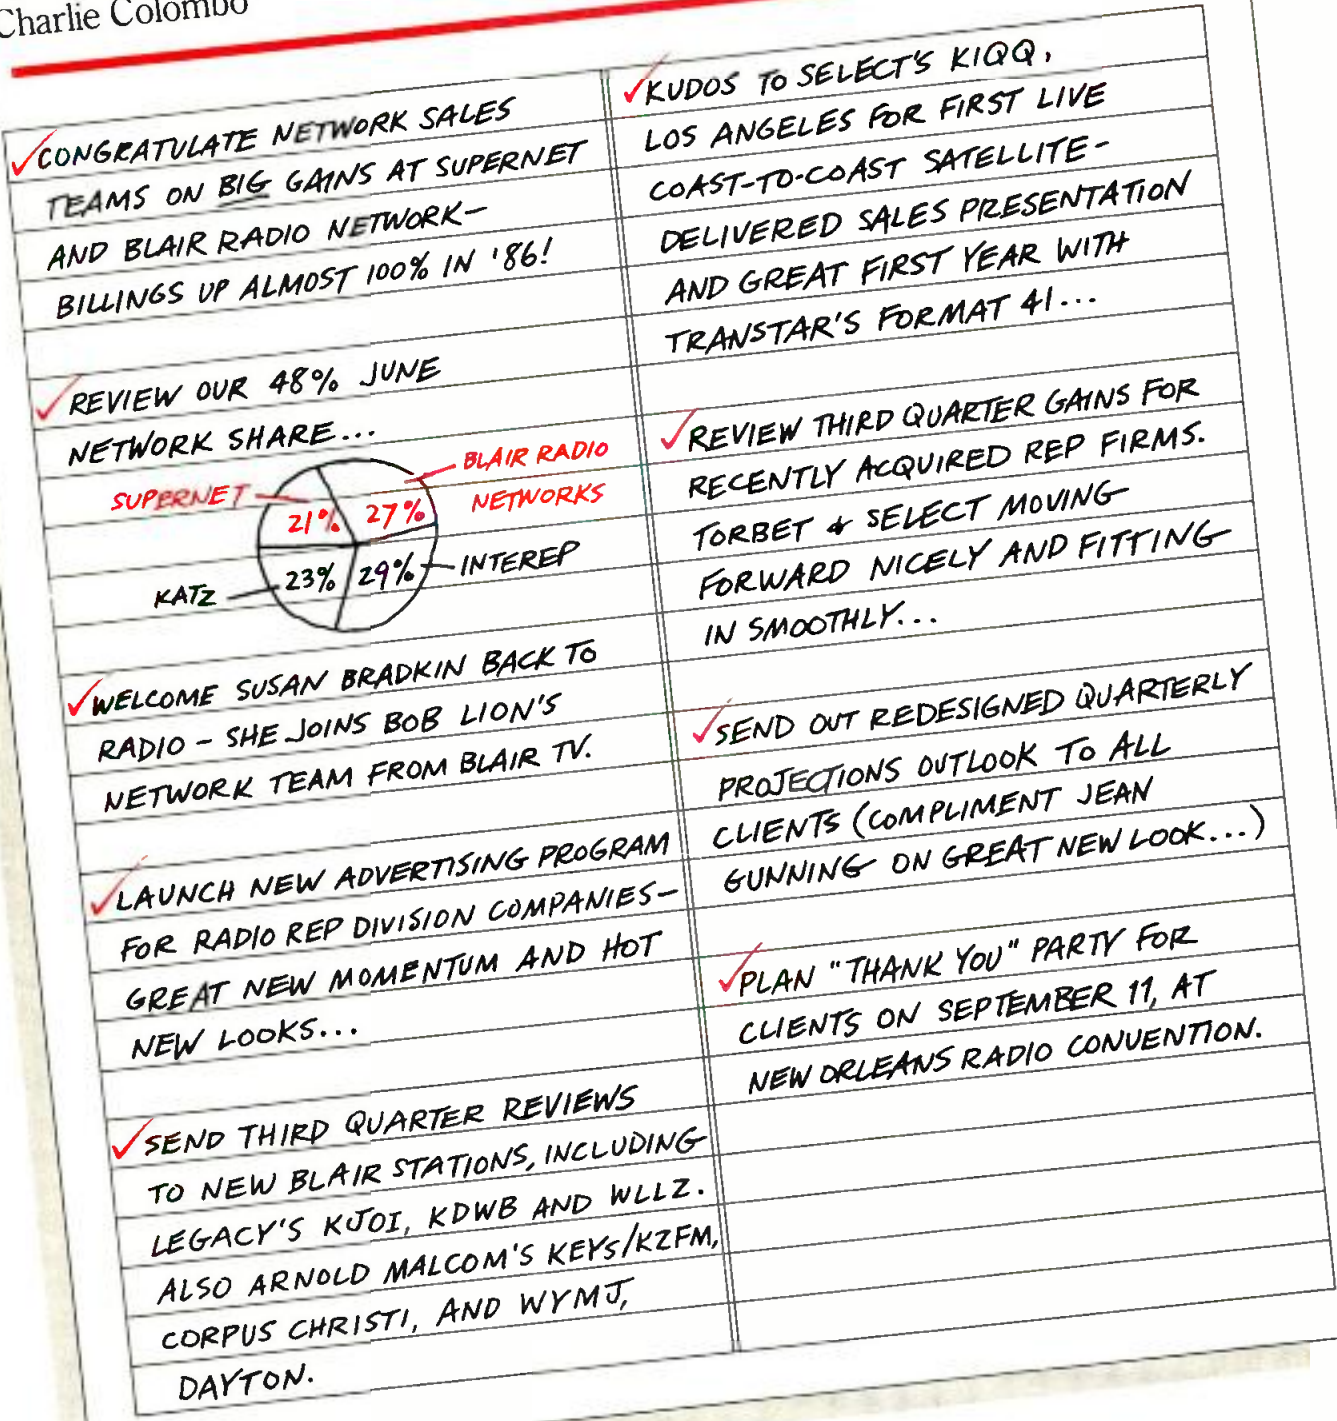 Charlie Colombo
✓CONGRATULATE NETWORK SALES
TEAMS ON BIG GAINS AT SUPERNET
AND BLAIR RADIO NETWORK-
BILLINGS UP ALMOST 100% IN '86!
✓REVIEW OUR 48% JUNE
NETWORK SHARE...
BLAIR RADIO
NETWORKS
SUPERNET
21%
27%
INTEREP
29%
23%
KATZ
✓WELCOME SUSAN BRADKIN BACK TO
RADIO - SHE JOINS BOB LION'S
NETWORK TEAM FROM BLAIR TV.
✓LAUNCH NEW ADVERTISING PROGRAM
FOR RADIO REP DIVISION COMPANIES-
GREAT NEW MOMENTUM AND HOT
NEW LOOKS...
✓SEND THIRD QUARTER REVIEWS
TO NEW BLAIR STATIONS, INCLUDING
LEGACY'S KJOI, KDWB AND WLLZ.
ALSO ARNOLD MALCOM'S KEYS/KZFM,
CORPUS CHRISTI, AND WYMJ,
DAYTON.
✓KUDOS TO SELECT'S KIQQ,
LOS ANGELES FOR FIRST LIVE
COAST-TO-COAST SATELLITE-
DELIVERED SALES PRESENTATION
AND GREAT FIRST YEAR WITH
TRANSTAR'S FORMAT 41...
✓REVIEW THIRD QUARTER GAINS FOR
RECENTLY ACQUIRED REP FIRMS.
TORBET & SELECT MOVING
FORWARD NICELY AND FITTING
IN SMOOTHLY...
✓SEND OUT REDESIGNED QUARTERLY
PROJECTIONS OUTLOOK TO ALL
CLIENTS (COMPLIMENT JEAN
GUNNING ON GREAT NEW LOOK...)
✓PLAN "THANK YOU" PARTY FOR
CLIENTS ON SEPTEMBER 11, AT
NEW ORLEANS RADIO CONVENTION.